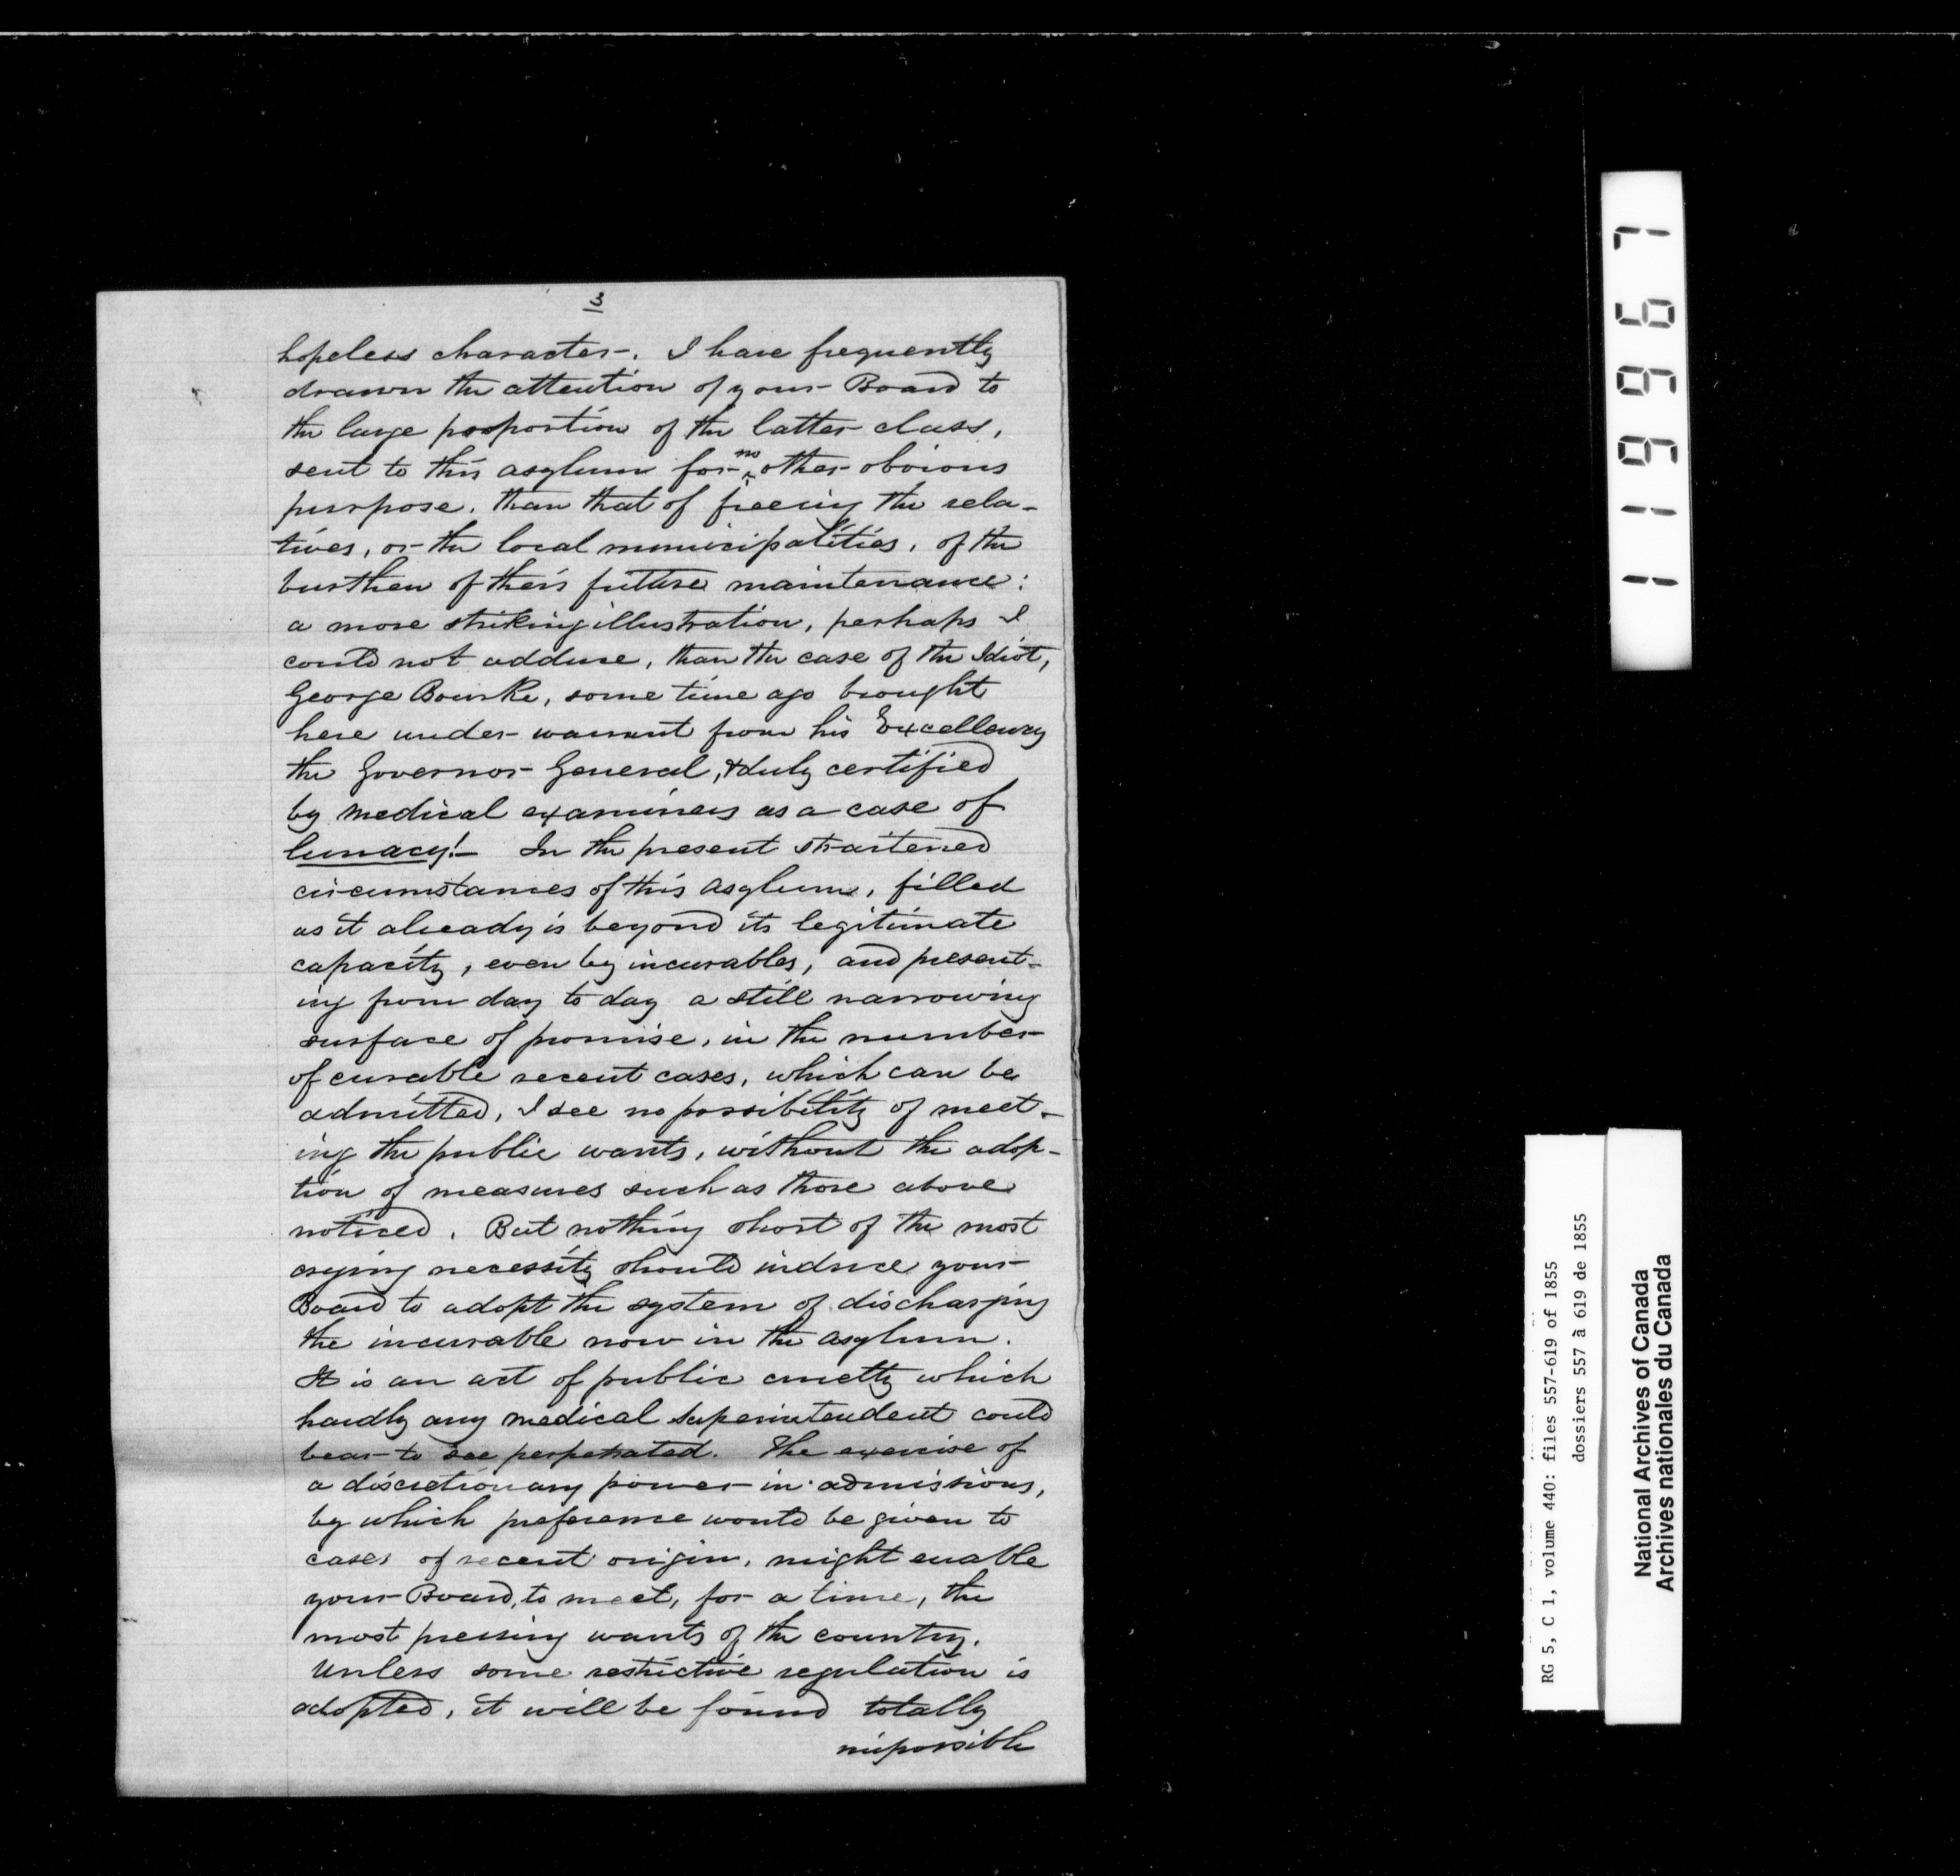 3
hopeless character. I have frequently
drawn the attention of your Board to
the large proportion of the latter class,
sent to this asylum for no other obvious
purpose, than that of freeing the rela-
tives, or the local municipalities, of the
burthen of their future maintenance:
a more striking illustration, perhaps I
could not adduce, than the case of the Idiot,
George Bourke, some time ago brought
here under warrant from his Excellency
the Governor General, & duly certified
by medical examiners as a case of
lunacy!— In the present straitened
circumstances of this Asylum, filled
as it already is beyond its legitimate
capacity, even by incurables, and present-
ing from day to day a still narrowing
surface of promise, in the number
of curable recent cases, which can be
admitted, I see no possibility of meet-
ing the public wants, without the adop-
tion of measures such as those above
noticed. But nothing short of the most
crying necessity should induce your
Board to adopt the system of discharging
the incurable now in the asylum.
It is an act of public cruelty which
hardly any medical superintendent could
bear to see perpetrated. The exercise of
a discretionary power in admissions,
by which preference would be given to
cases of recent origin, might enable
your Board, to meet, for a time, the
most pressing wants of the country.
Unless some restrictive regulation is
adopted, it will be found totally
impossible
119967
RG 5, C 1, volume 440: files 557-619 of 1855
dossiers 557 à 619 de 1855
National Archives of Canada
Archives nationales du Canada